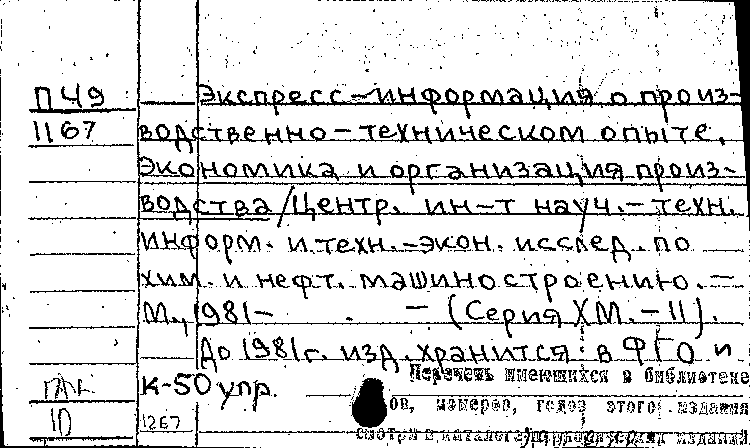 П49 Экспресс-информация о произ-
1167 водственно-техническом опыте.
Экономика и организация произ-
водства/Центр. ин-т науч.-техн.
информ. и техн.-экон. исслед. по
хим. и нефт. машиностроению. —
М., 1981- . — (Серия ХМ.-11).
До 1981г. изд. хранится в ФГО и
К-50 упр.
Перечень имеющихся в библиотеке
ов, номеров, годов этого издания
10 1267
смотри в каталоге
изданий